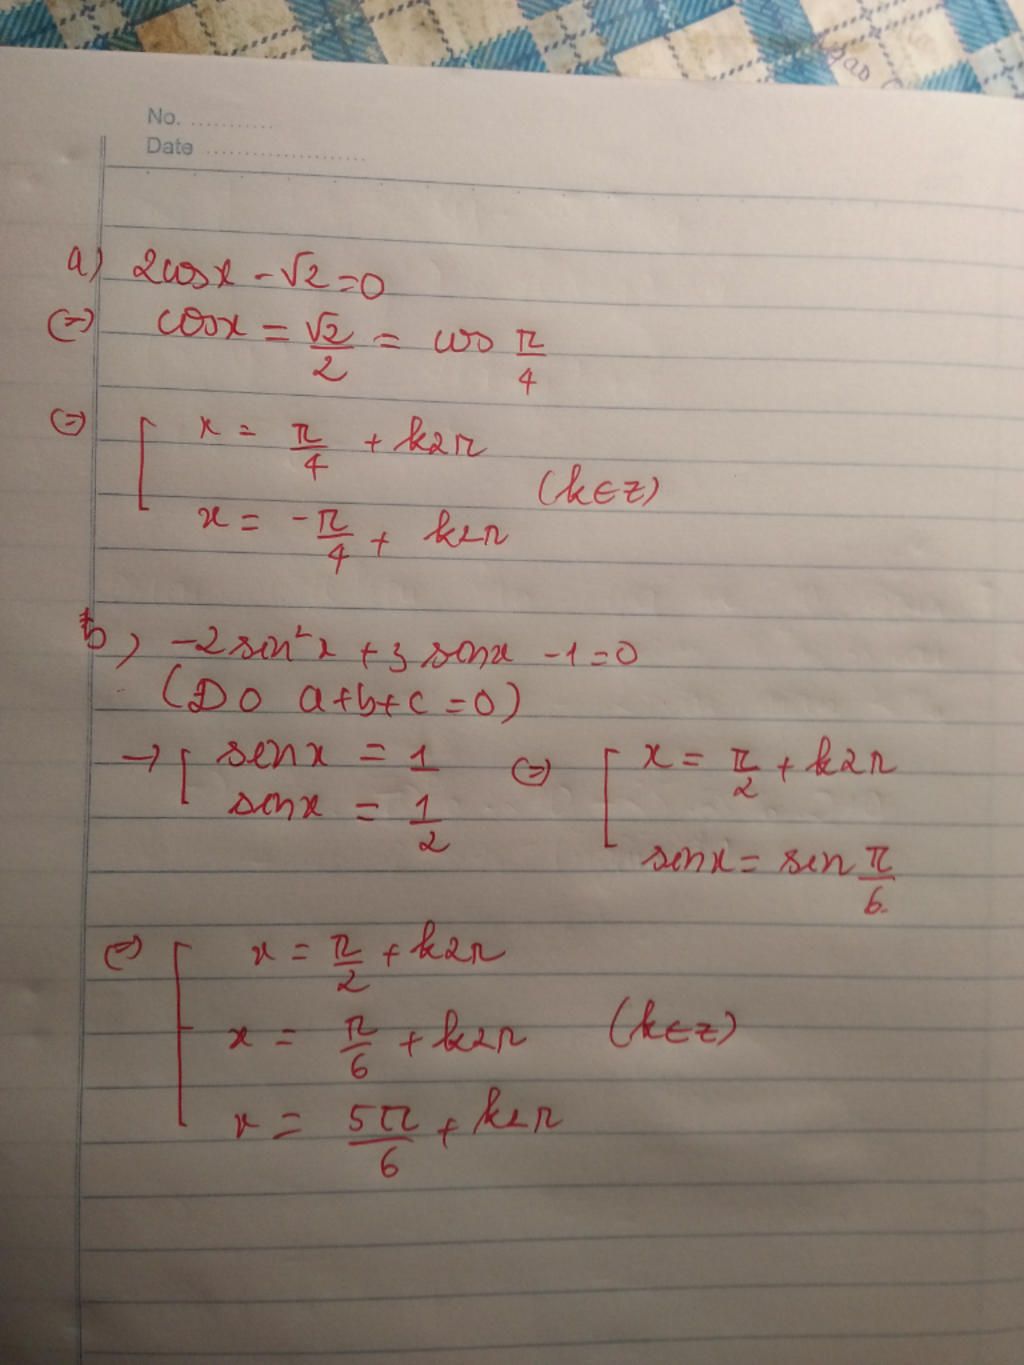 No. ...........
Date ......................
a) 2cosx - √2 = 0
(=) cosx = √2/2 = cos π/4
(=) [ x = π/4 + k2π
x = -π/4 + k2π (k∈Z)
b) -2sin²x + 3sinx - 1 = 0
(Do a+b+c = 0)
→ [ sinx = 1 (=) [ x = π/2 + k2π
sinx = 1/2 sinx = sin π/6
(=) [ x = π/2 + k2π
x = π/6 + k2π (k∈Z)
x = 5π/6 + k2π